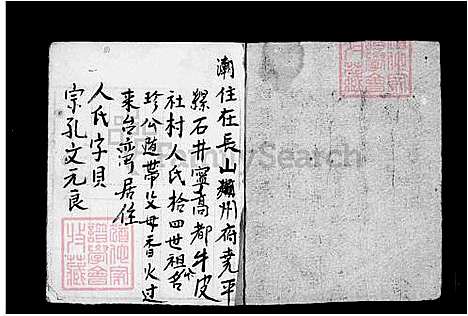 潮住在長山 州府堯平
縣石井寧高都牛皮
社村人氏拾四世祖名
珍公 帶父母香火过
來台湾居住
人氏字貝
宗孔文元良
FamilySearch